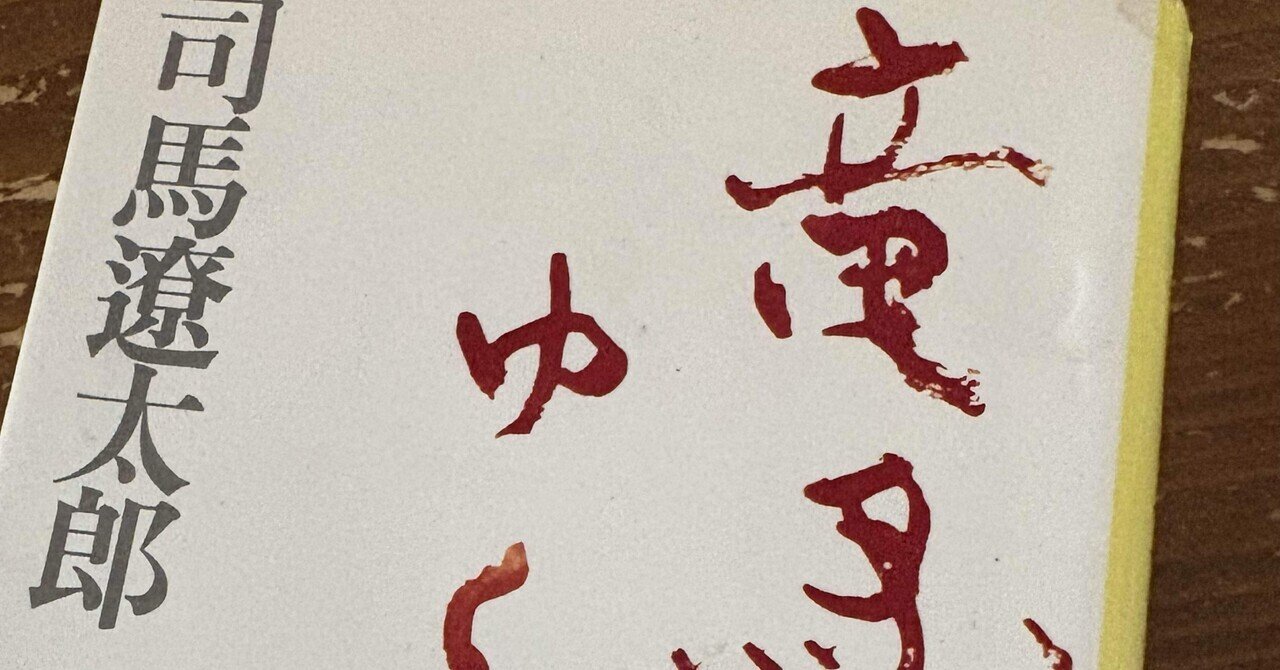 竜馬
ゆく
司馬遼太郎